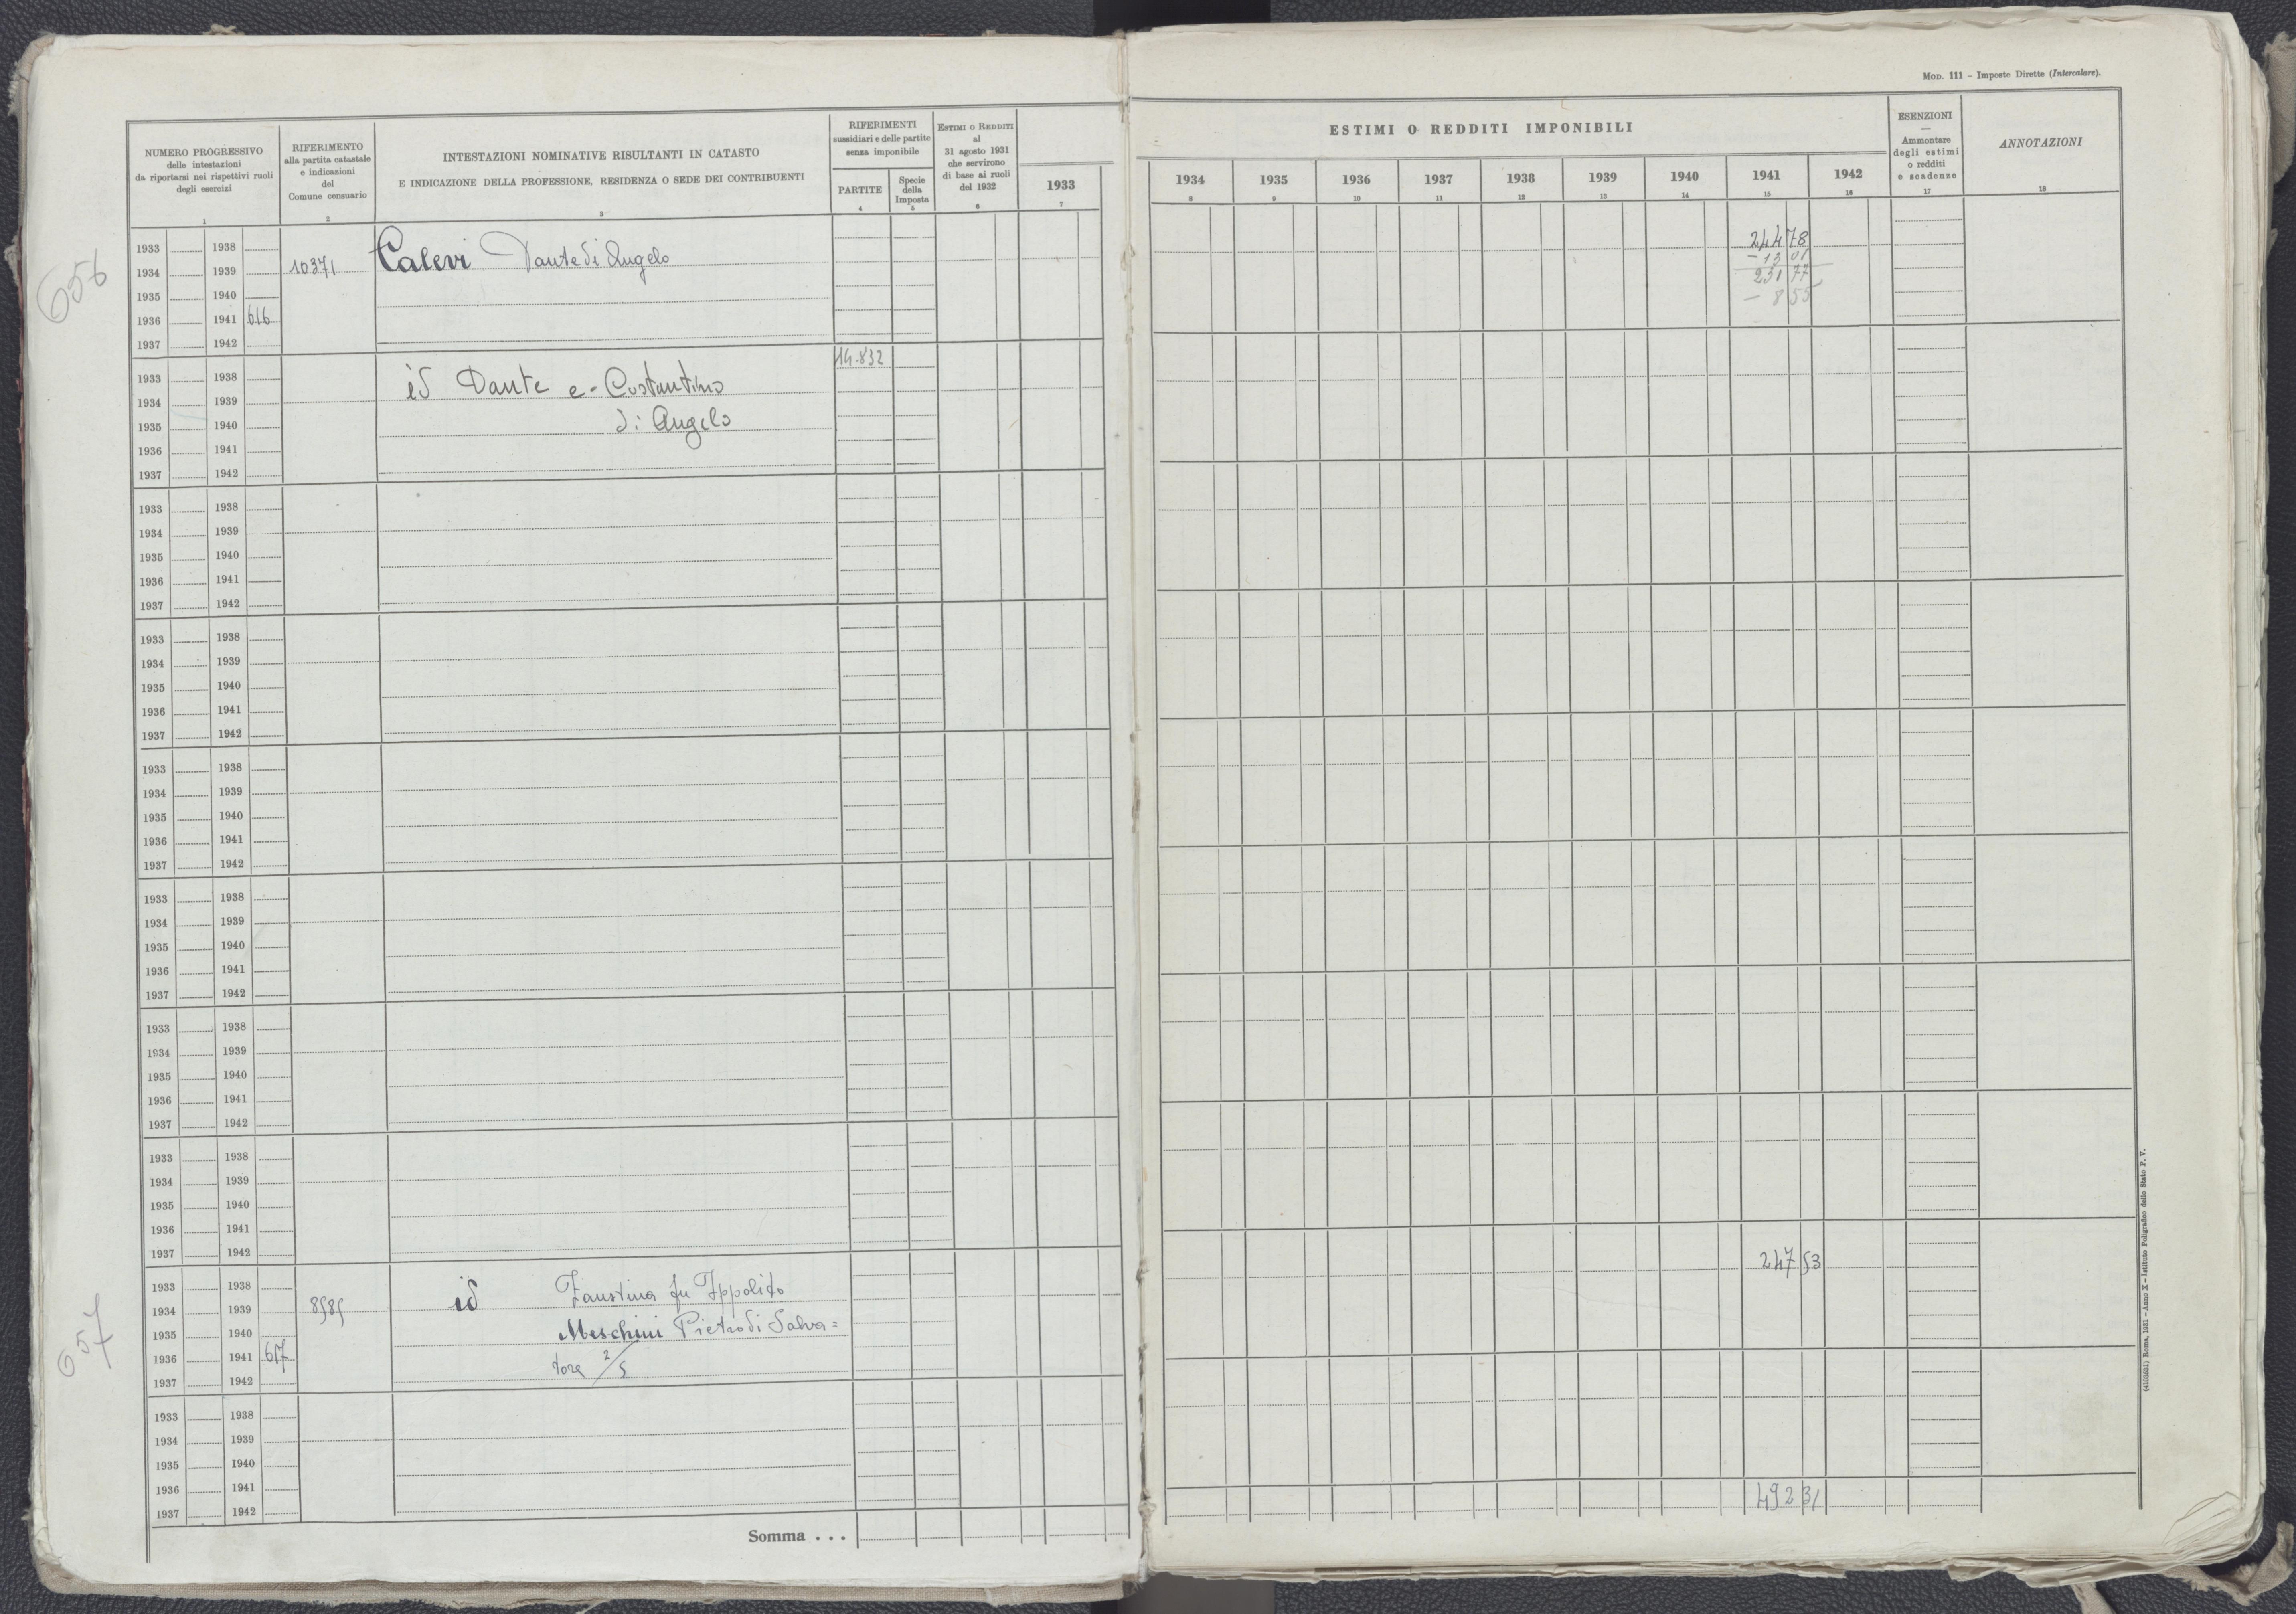 MOD. 111 – Imposte Dirette (Intercalare).
NUMERO PROGRESSIVO
delle intestazioni
da riportarsi nei rispettivi ruoli
degli esercizi
1
RIFERIMENTO
alla partita catastale
e indicazioni
del
Comune censuario
2
INTESTAZIONI NOMINATIVE RISULTANTI IN CATASTO
E INDICAZIONE DELLA PROFESSIONE, RESIDENZA O SEDE DEI CONTRIBUENTI
3
RIFERIMENTI
sussidiari e delle partite
senza imponibile
PARTITE
4
Specie
della
Imposta
5
ESTIMI O REDDITI
al
31 agosto 1931
che servirono
di base ai ruoli
del 1932
6
ESTIMI O REDDITI IMPONIBILI
1933
7
1934
8
1935
9
1936
10
1937
11
1938
12
1939
13
1940
14
1941
15
1942
16
ESENZIONI
—
Ammontare
degli estimi
o redditi
e scadenze
17
ANNOTAZIONI
18
656
1933 1938
1934 1939 10371 Calevi Dante di Angelo
1935 1940
1936 1941 616
1937 1942
244 78
- 13 01
231 77
- 8 55
14.832
1933 1938 id Dante e Costantino
1934 1939
1935 1940 di Angelo
1936 1941
1937 1942
1933 1938
1934 1939
1935 1940
1936 1941
1937 1942
1933 1938
1934 1939
1935 1940
1936 1941
1937 1942
1933 1938
1934 1939
1935 1940
1936 1941
1937 1942
1933 1938
1934 1939
1935 1940
1936 1941
1937 1942
1933 1938
1934 1939
1935 1940
1936 1941
1937 1942
1933 1938
1934 1939
1935 1940
1936 1941
1937 1942
657
1933 1938 id Faustina fu Ippolito 247 53
1934 1939 8585
1935 1940 Meschini Pietro di Salva=
1936 1941 617 tore 2/5
1937 1942
1933 1938
1934 1939
1935 1940
1936 1941
1937 1942
Somma . . . 492 31
(4105051) Roma, 1931 – Anno X – Istituto Poligrafico dello Stato P. V.